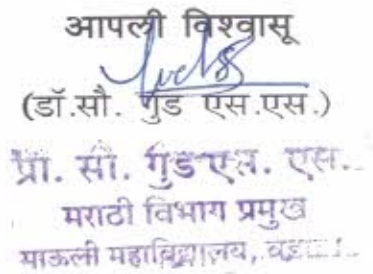 आपली विश्वासू
(डॉ.सौ. गुंड एस.एस.)
प्रा. सौ. गुंड एस. एस.
मराठी विभाग प्रमुख
माऊली महाविद्यालय,